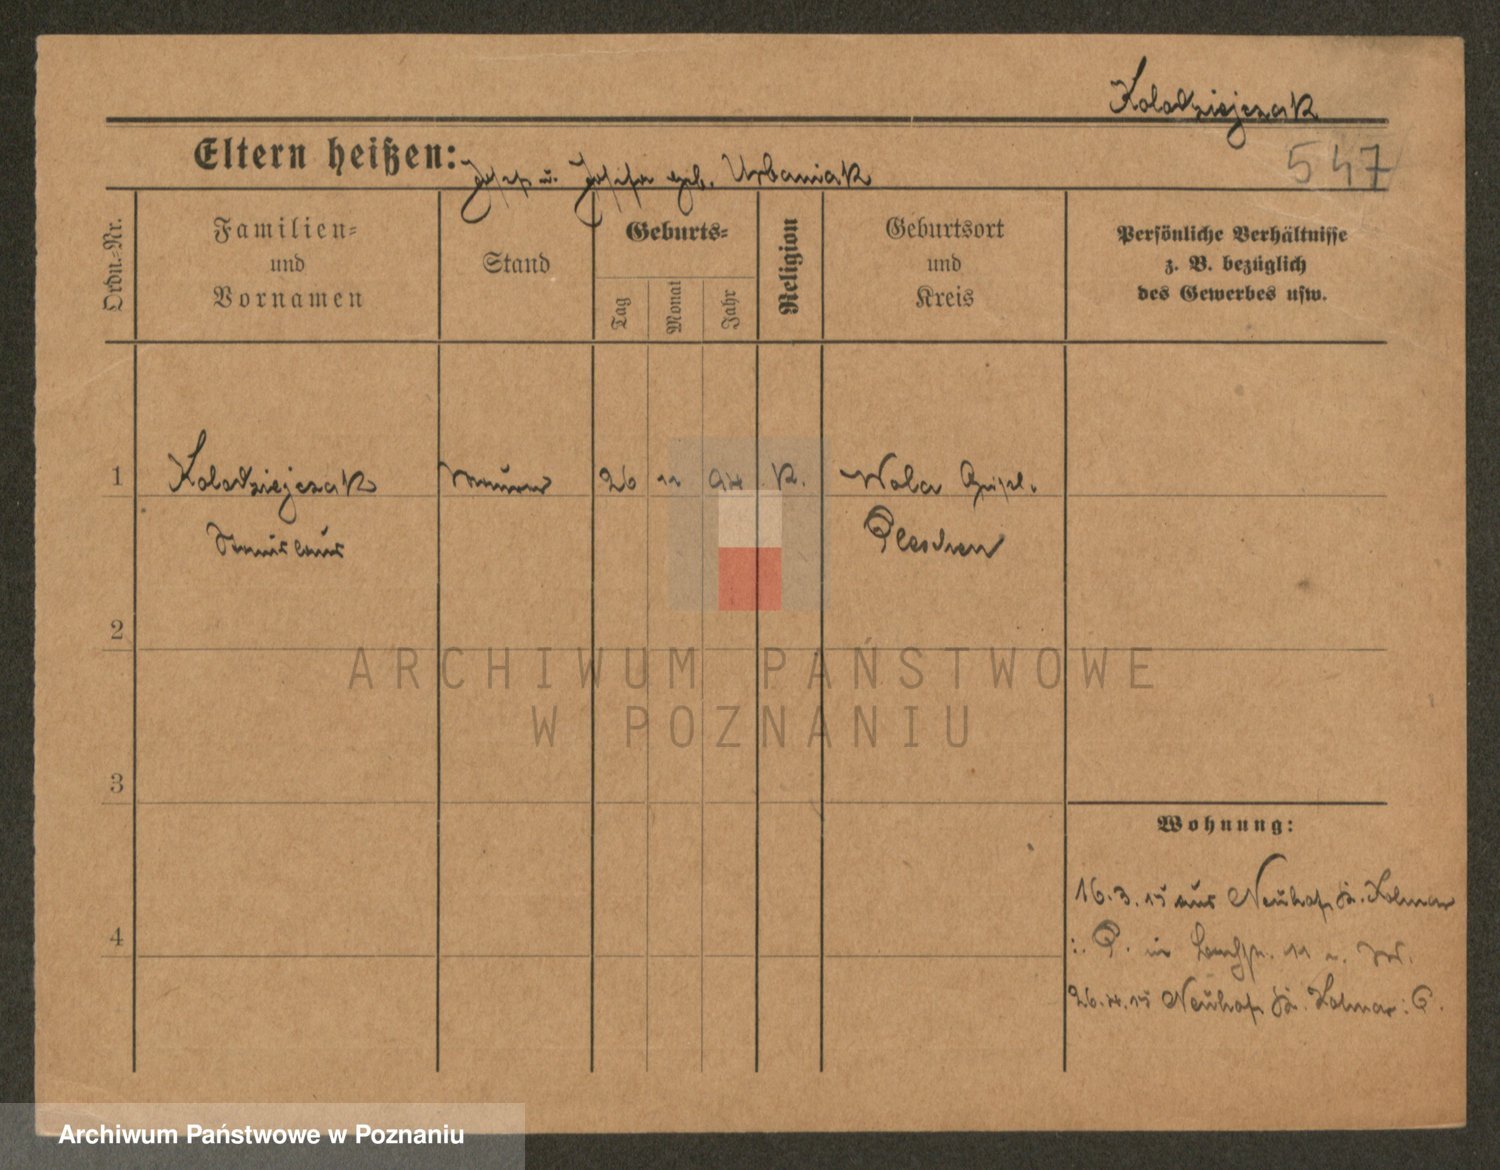 Kolodziejczak
547
Eltern heißen: Josef u. Josefa geb. Urbaniak
Ordn.-Nr.
Familien-
und
Vornamen
Stand
Geburts-
Tag
Monat
Jahr
Religion
Geburtsort
und
Kreis
Persönliche Verhältnisse
z. B. bezüglich
des Gewerbes usw.
1 Kolodziejczak Maurer 26 11 94 K. Wola
Stanislaus Pleschen
2
ARCHIWUM PAŃSTWOWE
W POZNANIU
3
Wohnung:
16.3.15 aus Neuhof Kr. Kolmar
4
i. P. 11
26.4.15 Neuhof Kr. Kolmar i. P.
Archiwum Państwowe w Poznaniu